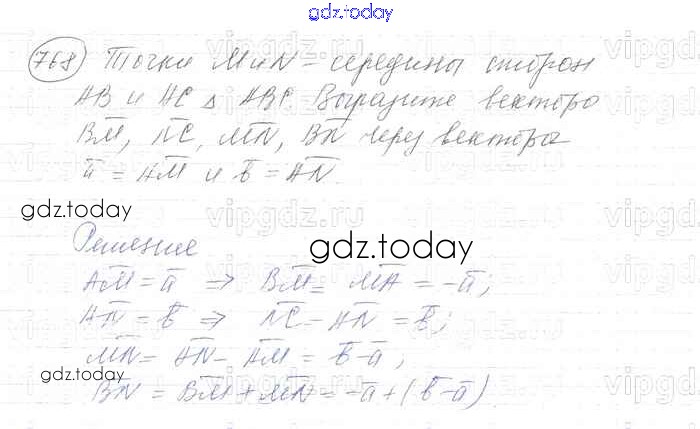 gdz.today
768 Точки M и N – середины сторон
AB и AC △ ABC. Выразите векторо
B̅M̅, N̅C̅, M̅N̅, B̅N̅ через векторы
a̅ = A̅M̅ и b̅ = A̅N̅.
gdz.today
Решение
gdz.today
A̅M̅ = a̅ ⇒ B̅M̅ = M̅A̅ = -a̅;
A̅N̅ = b̅ ⇒ N̅C̅ = A̅N̅ = b̅;
M̅N̅ = A̅N̅ - A̅M̅ = b̅-a̅;
gdz.today
B̅N̅ = B̅M̅ + M̅N̅ = -a̅ + (b̅-a̅)
vipgdz.ru